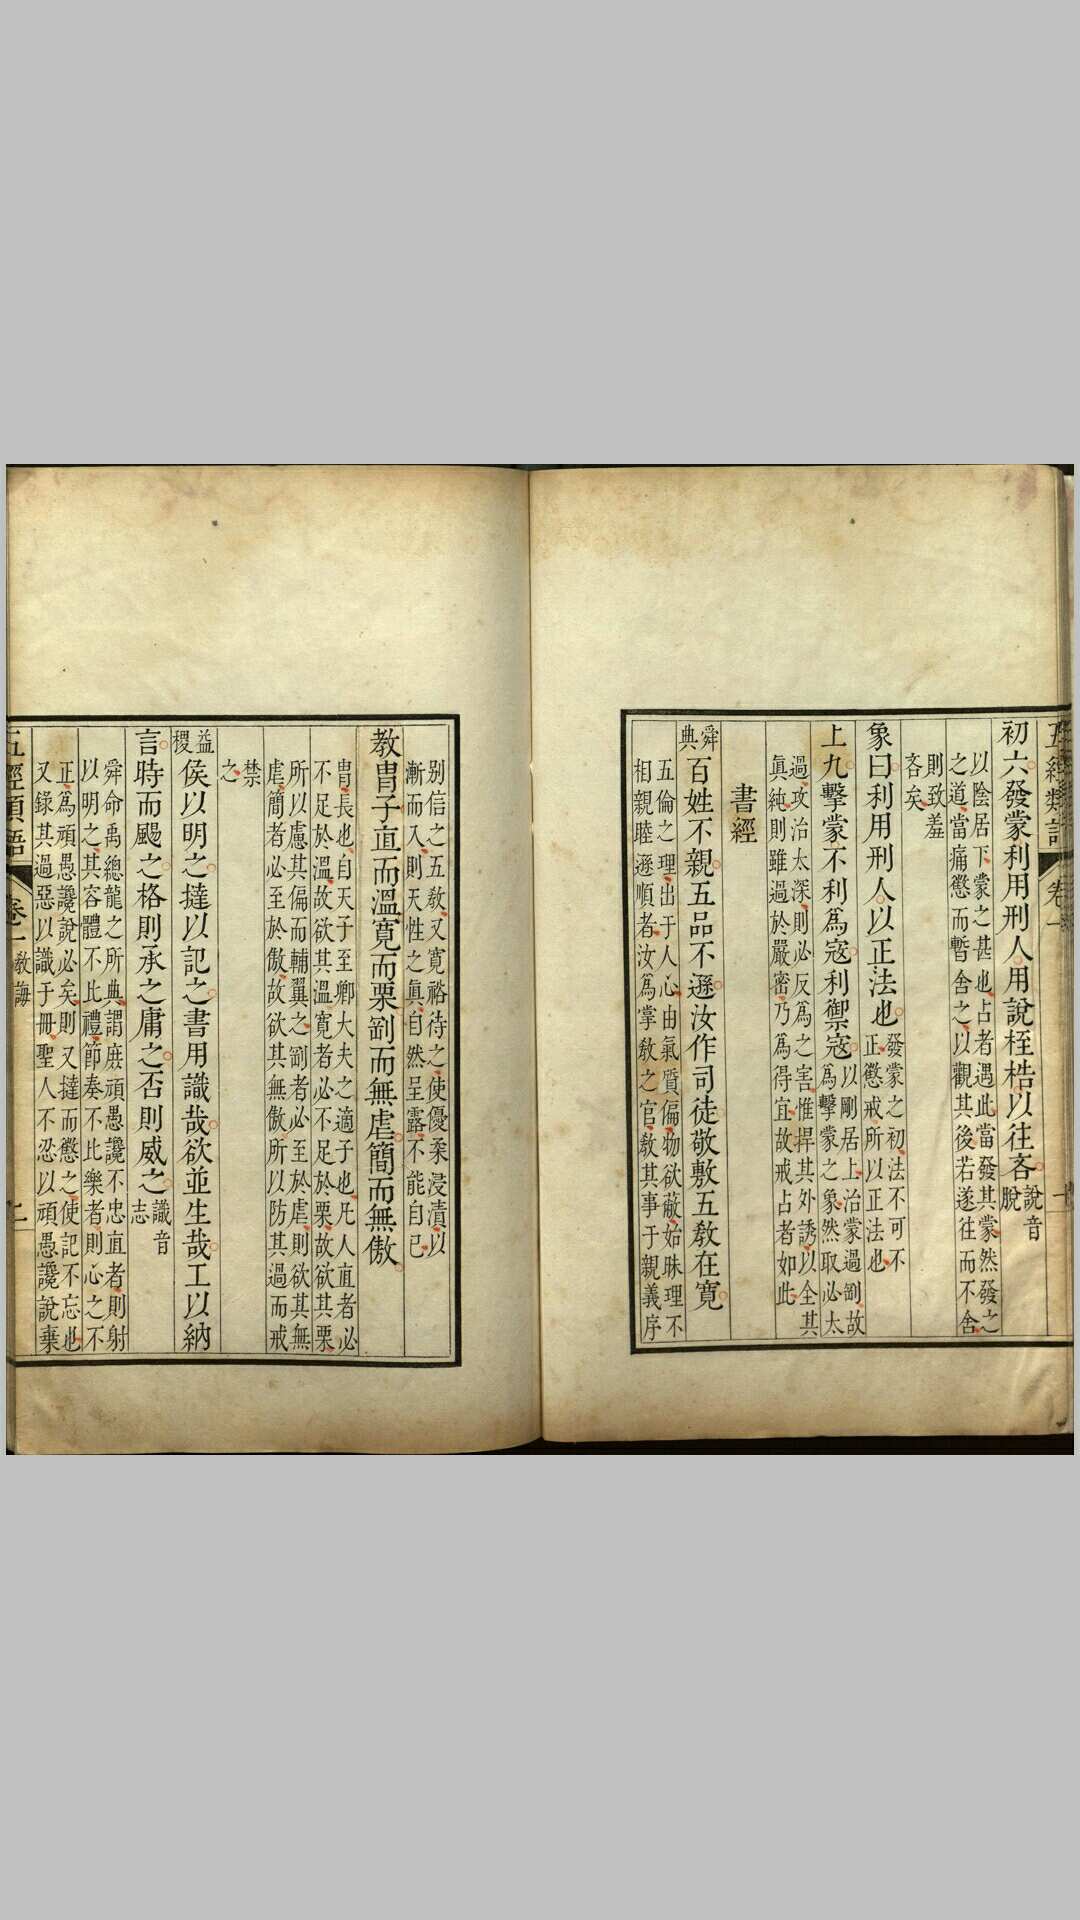 五經類語 卷一
初六發蒙利用刑人用說桎梏以往吝說音
脫
以陰居下蒙之甚也占者遇此當發其蒙然發之
之道當痛懲而暫舍之以觀其後若遂往而不舍
則致羞
吝矣
象曰利用刑人以正法也發蒙之初法不可不
正懲戒所以正法也
上九擊蒙不利為寇利禦寇以剛居上治蒙過剛故
為擊蒙之象然取必太
過攻治太深則必反為之害惟捍其外誘以全其
眞純則雖過於嚴密乃為得宜故戒占者如此
書經
舜典百姓不親五品不遜汝作司徒敬敷五敎在寬
五倫之理出于人心由氣質偏物欲蔽始昧理不
相親睦遜順者汝爲掌敎之官敎其事于親義序
别信之五敎又寬裕待之使優柔浸漬以
漸而入則天性之眞自然呈露不能自已
教冑子直而溫寬而栗剛而無虐簡而無傲
冑長也自天子至卿大夫之適子也凡人直者必
不足於溫故欲其溫寬者必不足於栗故欲其栗
所以慮其偏而輔翼之剛者必至於虐則欲其無
虐簡者必至於傲故欲其無傲所以防其過而戒
禁
之
益稷侯以明之撻以記之書用識哉欲並生哉工以納
言時而颺之格則承之庸之否則威之識音
志
舜命禹總龍之所典謂庶頑愚讒不忠直者則射
以明之其容體不比禮節奏不比樂者則心之不
正爲頑愚讒說必矣則又撻而懲之使記不忘也
又錄其過惡以識于冊聖人不忍以頑愚讒說棄
五經類語 卷一 教誨 二